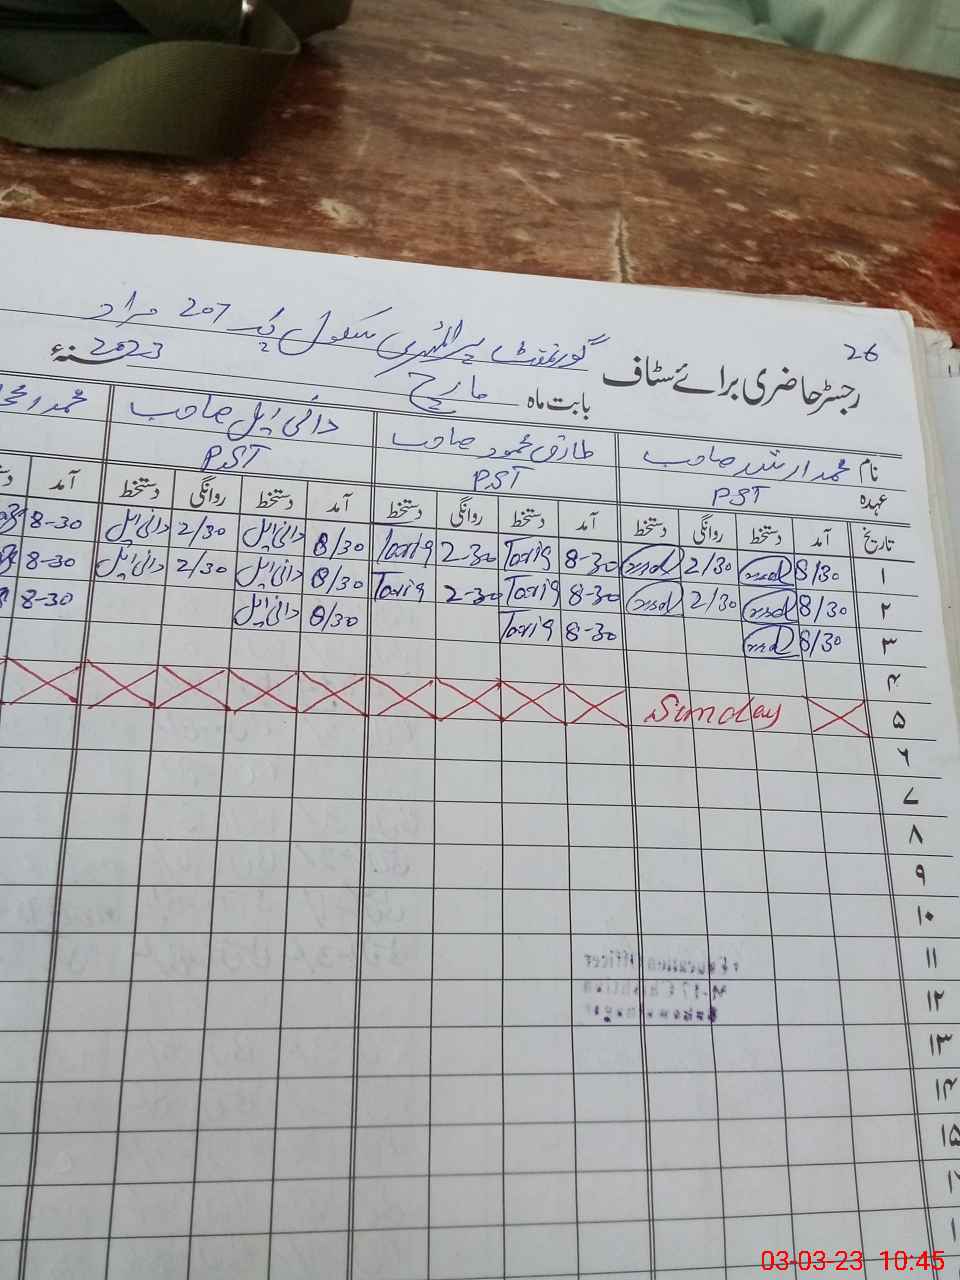 26
گورنمنٹ پرائمری سکول چک 207 مراد
رجسٹر حاضری برائے سٹاف
بابت ماہ مارچ سنہء 2023
نام محمد ارشد صاحب طارق محمود صاحب دانی ایل صاحب محمد
عہدہ PST PST PST
تاریخ آمد دستخط روانگی دستخط آمد دستخط روانگی دستخط آمد دستخط روانگی دستخط آمد
۱ 8/30 2/30 8-30 Tariq 2-30 Tariq 8/30 دانی ایل 2/30 دانی ایل 8-30
۲ 8/30 2/30 8-30 Tariq 2-30 Tariq 8/30 دانی ایل 2/30 دانی ایل 8-30
۳ 8/30 8-30 Tariq 8/30 دانی ایل 8-30
۴
۵ Sunday
۶
۷
۸
۹
۱۰
۱۱
۱۲
۱۳
۱۴
۱۵
03-03-23 10:45